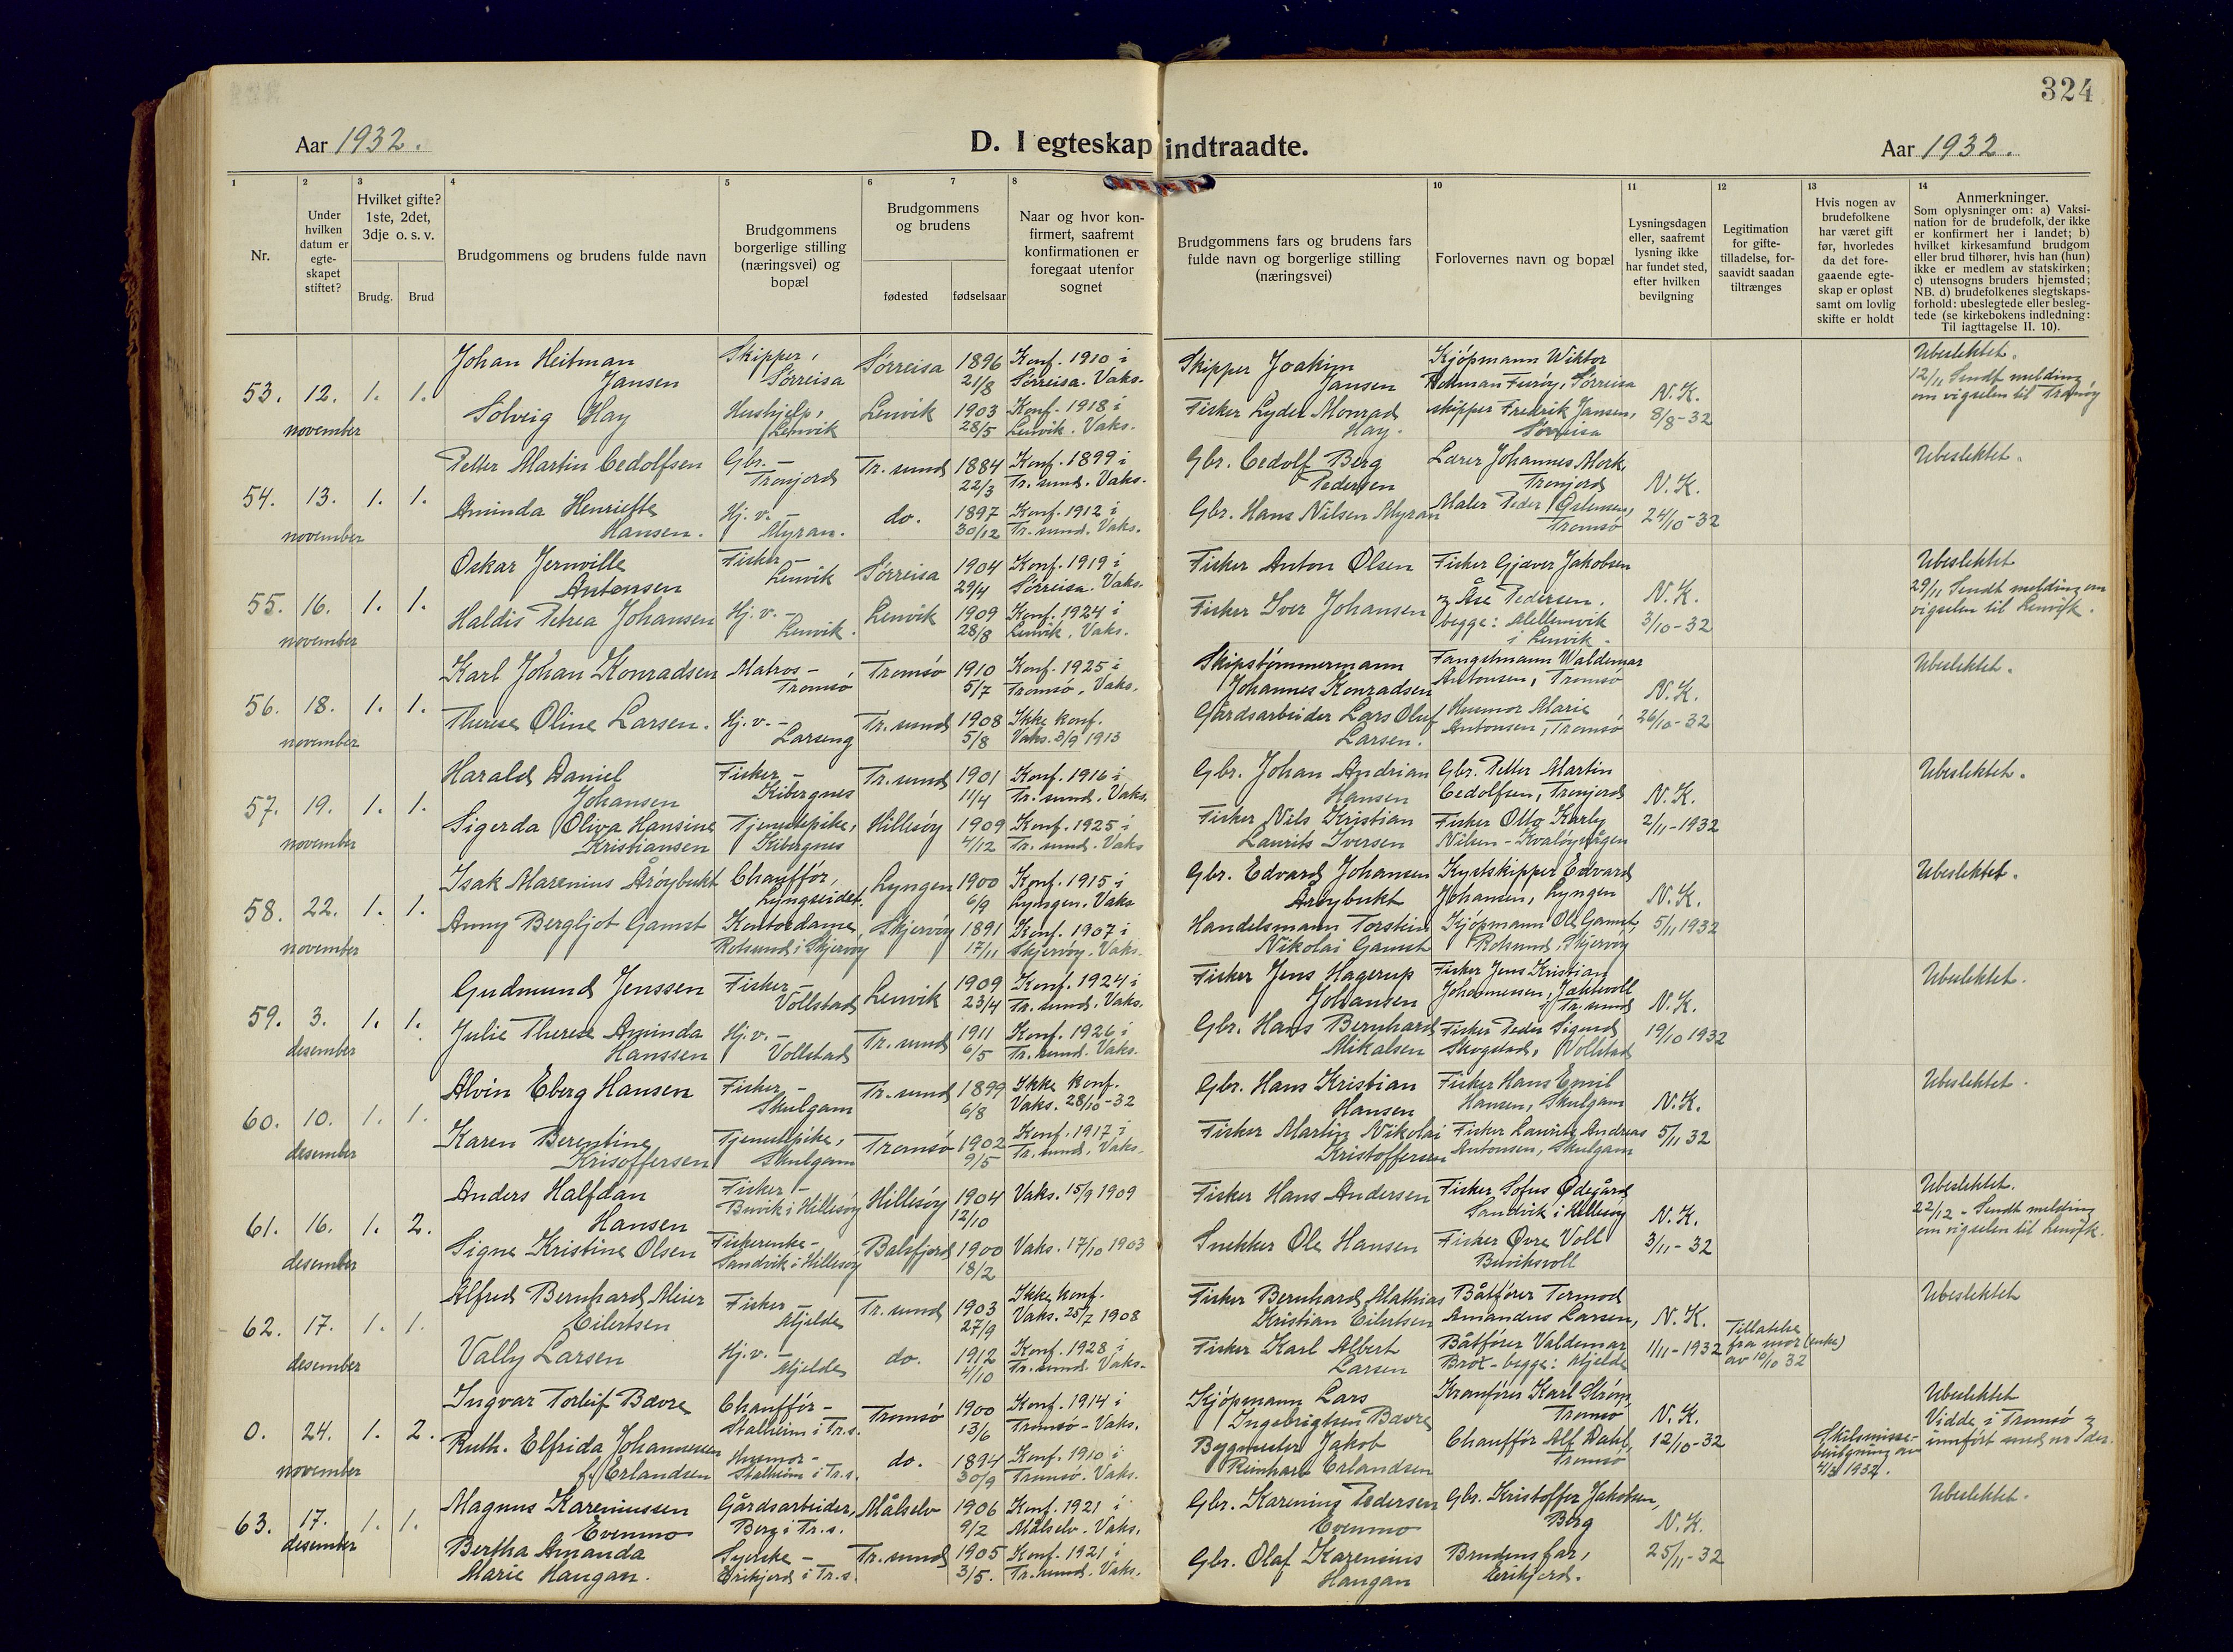 324
Aar 1932.
D. I egteskap indtraadte.
Aar 1932.
1 2 3 4 5 6 7 8 10 11 12 13 14
Nr.
Under hvilken datum er egte-skapet stiftet?
Hvilket gifte? 1ste, 2det, 3dje o. s. v.
Brudg. Brud
Brudgommens og brudens fulde navn
Brudgommens borgerlige stilling (næringsvei) og bopæl
Brudgommens og brudens
fødested fødselsaar
Naar og hvor kon-firmert, saafremt konfirmationen er foregaat utenfor sognet
Brudgommens fars og brudens fars fulde navn og borgerlige stilling (næringsvei)
Forlovernes navn og bopæl
Lysningsdagen eller, saafremt lysning ikke har fundet sted, efter hvilken bevilgning
Legitimation for gifte-tilladelse, for-saavidt saadan tiltrænges
Hvis nogen av brudefolkene har været gift før, hvorledes da det fore-gaaende egte-skap er opløst samt om lovlig skifte er holdt
Anmerkninger.
Som oplysninger om: a) Vaksi-nation for de brudefolk, der ikke er konfirmert her i landet; b) hvilket kirkesamfund brudgom eller brud tilhører, hvis han (hun) ikke er medlem av statskirken; c) utensogns bruders hjemsted; NB. d) brudefolkenes slegtskaps-forhold: ubeslegtede eller besleg-tede (se kirkebokens indledning: Til iagttagelse II. 10).
53. 12. november 1. 1.
Johan Heitman Jansen Skipper, Sørreisa Sørreisa 1896 21/8 Konf. 1910 i Sørreisa. Vaks.
Solveig Hay Hushjelp, Lenvik Lenvik 1903 28/5 Konf. 1918 i Lenvik. Vaks.
Skipper Joakim Jansen Kjøpmann Wiktor Furøy, Sørreisa
Fisker Lyder Monrad Hay. skipper Fredrik Jansen, Sørreisa
N.K. 8/8-32
Ubeslektet. 12/11 Sendt melding om vigselen til Tranøy
54. 13. november 1. 1.
Petter Martin Cedolfsen Gbr. - Tronjord Tr.sund 1884 22/3 Konf. 1899 i Tr.sund. Vaks.
Aminda Henriette Hansen. Hj.v. - Myran. do. 1897 30/12 Konf. 1912 i Tr.sund. Vaks.
Gbr. Cedolf Berg Pedersen Lærer Johannes Mork Tronjord
Gbr. Hans Nilsen Myran Maler Peder Tromsø
N.K. 24/10-32
Ubeslektet.
55. 16. november 1. 1.
Oskar Jernville Antonsen Fisker - Lenvik Sørreisa 1904 29/4 Konf. 1919 i Sørreisa. Vaks.
Haldis Petrea Johansen Hj.v. - Lenvik. Lenvik 1909 28/8 Konf. 1924 i Lenvik. Vaks.
Fisker Anton Olsen Fisker Gjæver Jakobsen
Fisker Iver Johansen og Åse Pedersen. begge: Mellemvik i Lenvik.
N.K. 3/10-32
Ubeslektet 29/11 Sendt melding om vigselen til Lenvik.
56. 18. november 1. 1.
Karl Johan Konradsen Matros - Tromsø Tromsø 1910 5/7 Konf. 1925 i Tromsø. Vaks.
Therese Oline Larsen. Hj.v. - Larseng Tr.sund 1908 5/8 Ikke konf. Vaks. 3/9 1913
Skipstømmermann Johannes Konradsen Fangstmann Waldemar Antonsen, Tromsø
Gårdsarbeider Lars Oluf Larsen. Husmor Marie Antonsen, Tromsø
N.K. 26/10-32
Ubeslektet.
57. 19. november 1. 1.
Harald Daniel Johansen Fisker - Kibergnes Tr.sund 1901 11/4 Konf. 1916 i Tr.sund. Vaks.
Sigerda Oliva Hansine Kristiansen Tjenestpike, Kibergnes Hillesøy 1909 4/12 Konf. 1925 i Tr.sund. Vaks
Gbr. Johan Andrian Hansen Gbr. Petter Martin Cedolfsen, Tronjord
Fisker Nils Kristian Laurits Iversen Fisker Otto Karly Nilsen - Kvaløyvågen
N.K. 2/11-1932
Ubeslektet.
58. 22. november 1. 1.
Isak Marenius Årøybukt Chauffør, Lyngseidet. Lyngen 1900 6/9 Konf. 1915 i Lyngen. Vaks
Anny Bergljot Gamst Kontordame, Rotsund i Skjervøy Skjervøy 1891 17/11 Konf. 1907 i Skjervøy. Vaks.
Gbr. Edvard Johansen Årøybukt Kystskipper Edvard Johansen, Lyngen
Handelsmann Torstein Nikolai Gamst Kjøpmann Ole Gamst, Rotsund, Skjervøy
N.K. 5/11 1932
Ubeslektet.
59. 3. desember 1. 1.
Gudmund Jenssen Fisker - Vollstad Lenvik 1909 23/4 Konf. 1924 i Tr.sund. Vaks.
Julie Therese Aminda Hanssen Hj.v. - Vollstad Tr.sund 1911 6/5 Konf. 1926 i Tr.sund. Vaks.
Fisker Jens Hagerup Johansen Fisker Jens Kristian Johannessen, Jøkkevoll i Tr.sund
Gbr. Hans Bernhard Mikalsen Fisker Peder Sigurd Skogstad, Vollstad
N.K. 19/10 1932
Ubeslektet.
60. 10. desember 1. 1.
Alvin Eberg Hansen Fisker - Skulgam Tr.sund 1899 6/8 Ikke konf. Vaks. 28/10-32
Karen Berentine Krisoffersen Tjenestpike, Skulgam Tromsø 1902 9/5 Konf. 1917 i Tr.sund. Vaks.
Gbr. Hans Kristian Hansen Fisker Hans Emil Hansen, Skulgam
Fisker Martin Nikolai Kristoffersen Fisker Laurits Andreas Antonsen, Skulgam
N.K. 5/11 32
Ubeslektet.
61. 16. desember 1. 2.
Anders Halfdan Hansen Fisker - Buvik i Hillesøy Hillesøy 1904 12/10 Vaks. 15/9 1909
Signe Kristine Olsen Fiskerenke - Sandvik i Hillesøy Balsfjord 1900 18/2 Vaks. 17/10 1903
Fisker Hans Andersen Fisker Sofus Ødegård, Sandvik i Hillesøy
Snekker Ole Hansen Fisker Øvre Voll Buviksvoll
N.K. 3/11-32
Ubeslektet. 22/12 - Sendt melding om vigselen til Lenvik.
62. 17. desember 1. 1.
Alfred Bernhard Meier Eilertsen Fisker - Mjelde Tr.sund 1903 27/9 Ikke konf. Vaks. 25/7 1908
Vally Larsen Hj.v. - Mjelde do. 1912 4/10 Konf. 1928 i Tr.sund. Vaks.
Fisker Bernhard Mathias Kristian Eilertsen Båtfører Tormod Amandus Larsen,
Fisker Karl Albert Larsen Båtfører Valdemar Brox - begge: Mjelde
N.K. 1/11-1932 Tillatelse fra mor (enke) av 10/10 32
Ubeslektet
0. 24. november 1. 2.
Ingvar Torleif Bævre Chauffør - Stalheim i Tr.s. Tromsø 1900 13/6 Konf. 1914 i Tromsø - Vaks.
Ruth. Elfrida Johannessen f. Erlandsen Husmor - Stalheim i Tr.s. do. 1894 30/9 Konf. 1910 i Tromsø. Vaks.
Kjøpmann Lars Ingebrigtsen Bævre Kranfører Karl Strøm, Tromsø
Bygmester Jakob Reinhart Erlandsen Chauffør Alf Dahl, Tromsø
N.K. 12/10-32 Skilsmisse-bevilgning av 1932.
Ubeslektet Vidde i Tromsø og innført med nr der.
63. 17. desember 1. 1.
Magnus Kareniussen Evenmo Gårdsarbeider, Berg i Tr.s. Målselv 1906 9/2 Konf. 1921 i Målselv. Vaks.
Bertha Amanda Marie Haugan. Syerske - Eirikjord i Tr.s. Tr.sund 1905 3/5. Konf. 1921 i Tr.sund. Vaks.
Gbr. Karenius Pedersen Evenmo Gbr. Kristoffer Jakobsen, Berg
Gbr. Olaf Karenius Haugan Brudens far, Eirikjord.
N.K. 25/11-32
Ubeslektet.